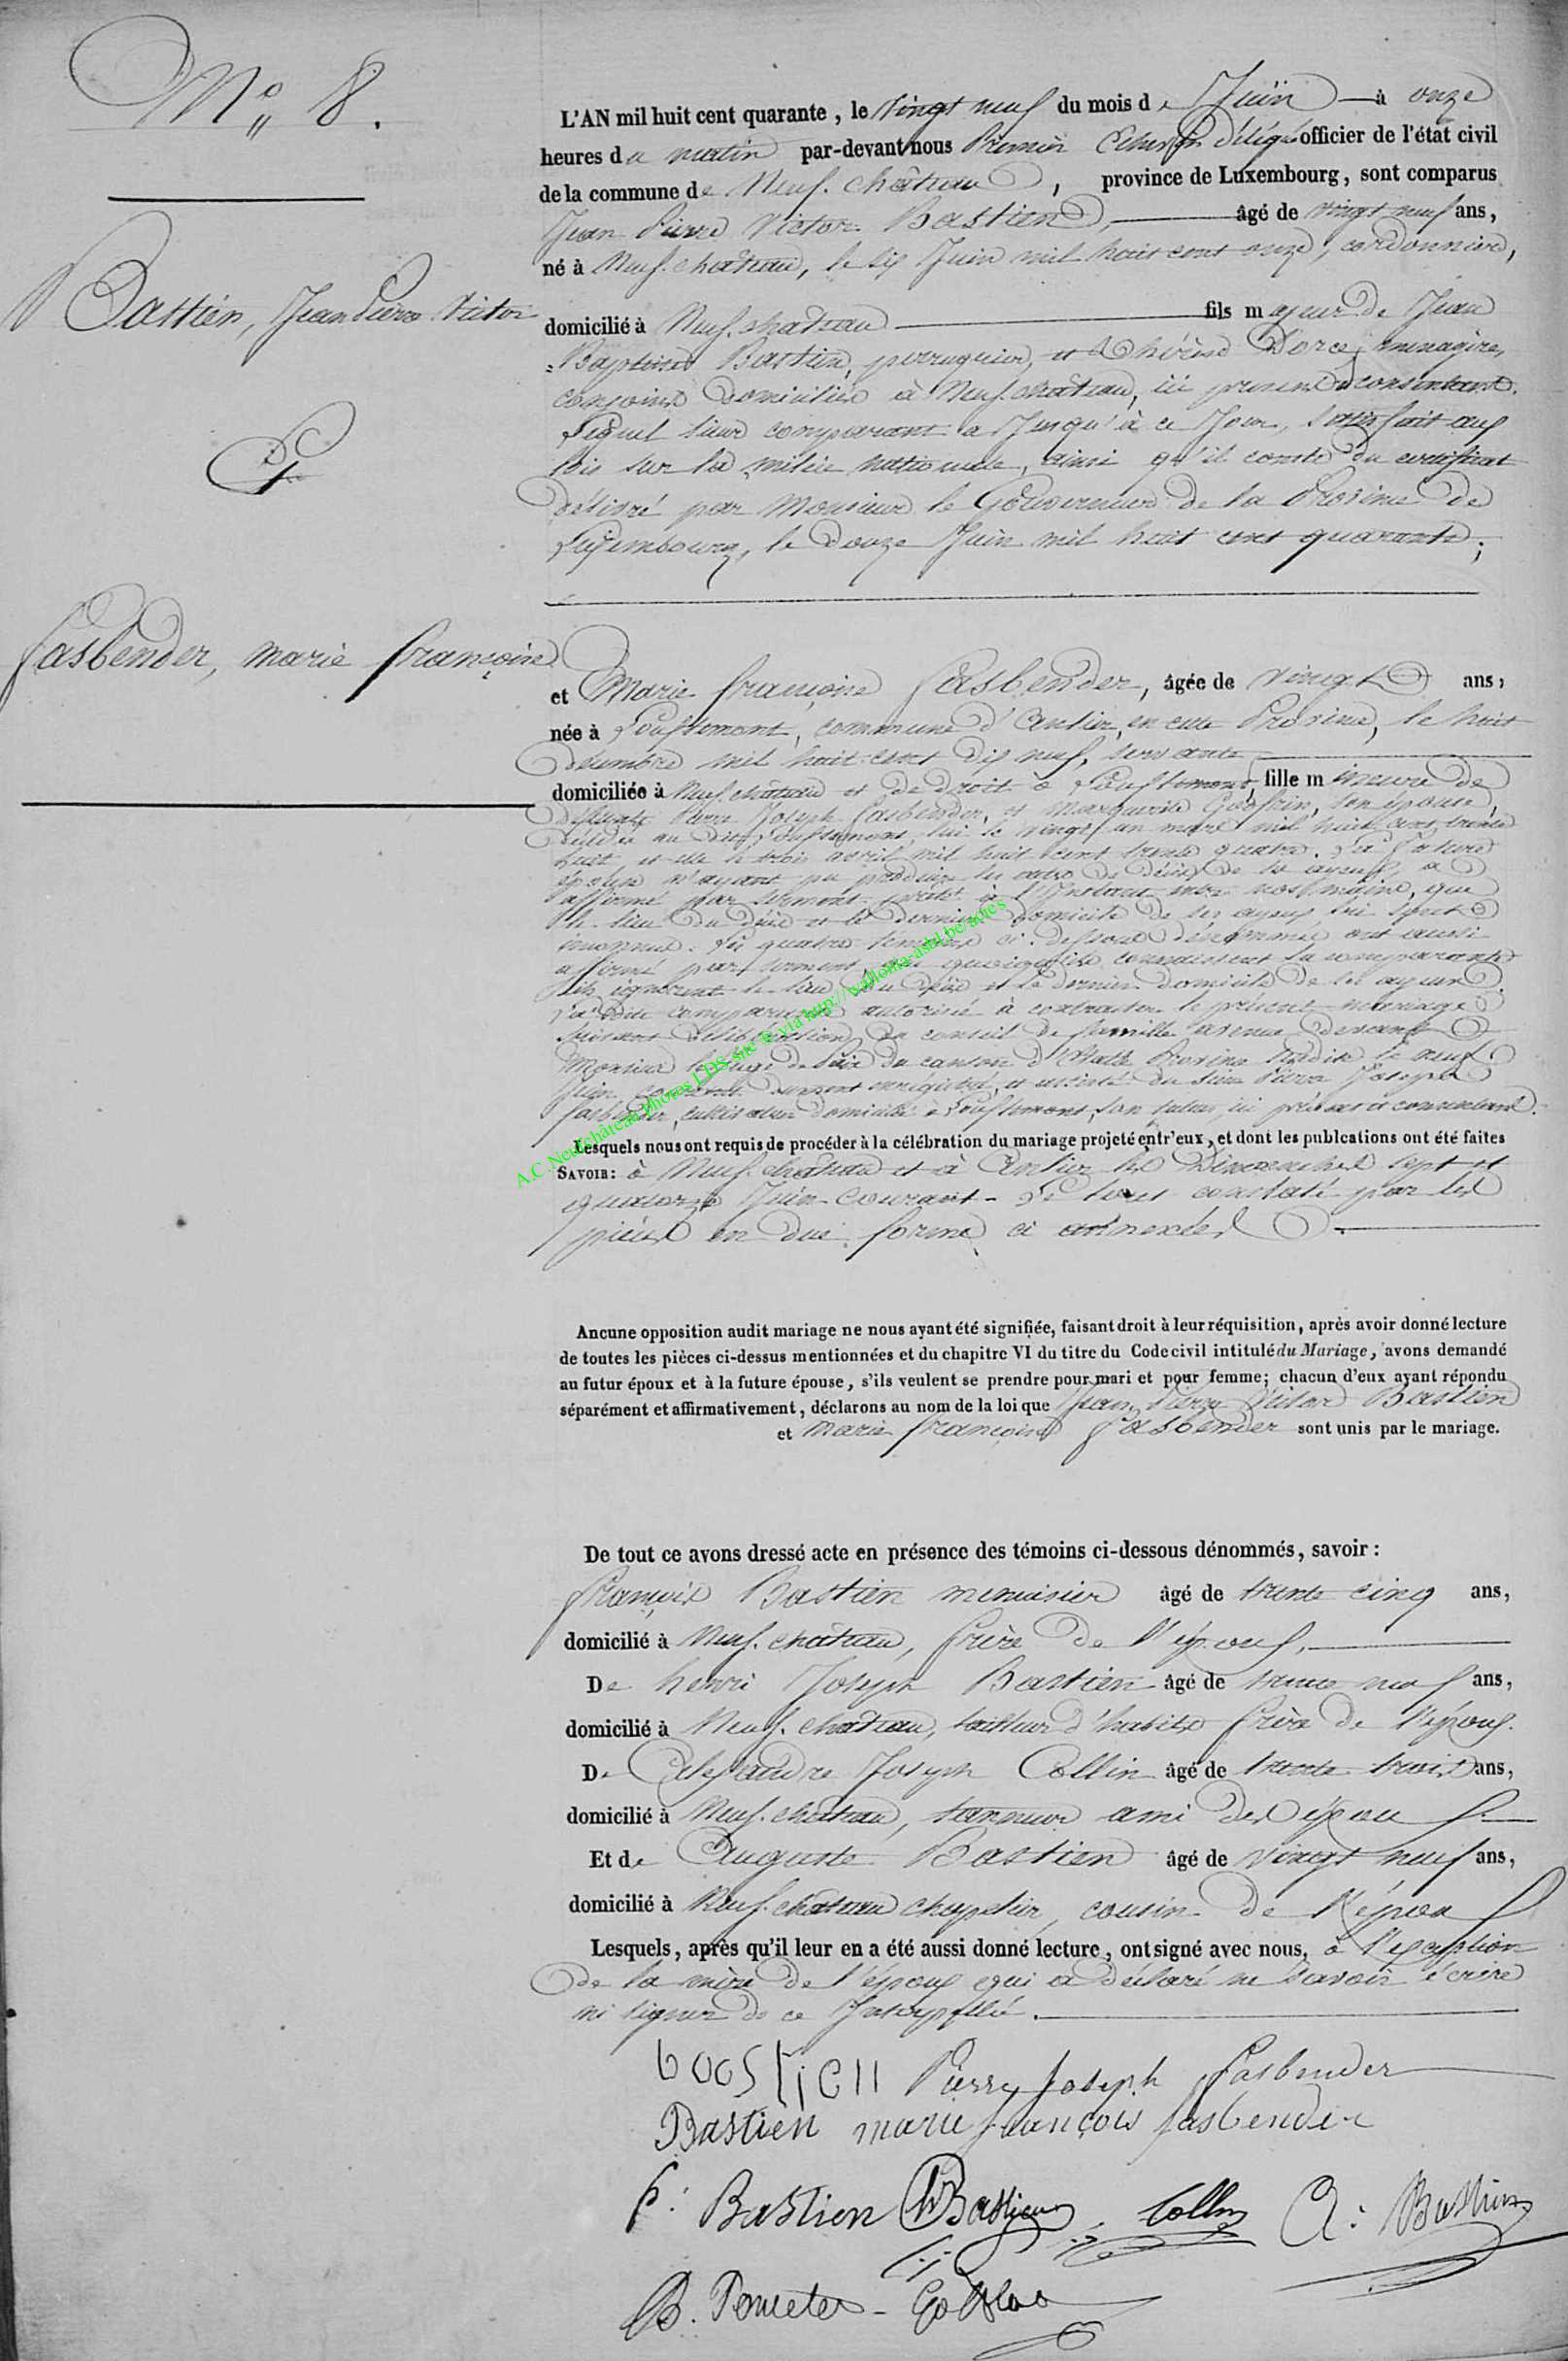 N° 8.
Bastien, Jean Pierre Victor
Et
fasbender, marie françoise
L'AN mil huit cent quarante, le vingt neuf du mois de Juin à onze
heures du matin par-devant nous Premier Echevin délégué officier de l'état civil
de la commune de Neuf-château, province de Luxembourg, sont comparus
Jean Pierre Victor Bastien, âgé de vingt neuf ans,
né à Neuf-château, le six Juin mil huit cent onze, cordonnier,
domicilié à Neuf-château fils majeur de Jean
Baptiste Bastien, perruquier, et Thérèse Dorcé, menagère,
conjoints domiciliés à Neuf-château, ici présens et consentant.
Lequel sieur comparant a Jusqu'à ce Jour, satisfait aux
lois sur la milice nationale, ainsi qu'il conste du certificat
délivré par Monsieur le Gouverneur de la Province de
Luxembourg, le douze Juin mil huit cent quarante;
et Marie françoise fasbender, âgée de vingt ans,
née à Louftémont, commune d'Anlier, en cette Province, le huit
décembre mil huit cent dix neuf, servante
domiciliée à Neuf-château et de droit à Louftémont, fille mineure de
défunts Pierre Joseph fasbender, et Marguerite son épouse,
décédés au dit Louftémont, lui le vingt un mars mil huit cent trente
huit et elle le trois avril mil huit cent trente quatre. La future
épouse n'ayant pu produire les actes de décès de ses ayeux, a
affirmé par serment prêté à l'Instant entre nos mains, que
le lieu du décès et le dernier domicile de ses ayeux lui sont
inconnus. Les quatre témoins ci-dessous dénommés ont aussi
affirmé par serment, que quoiqu'ils connaissent la comparante
ils ignorent le lieu du décès et le dernier domicile de ses ayeux.
La dite comparante autorisée à contracter le présent mariage
suivant délibération du conseil de famille avenue devant
Monsieur le Juge de Paix du canton d'Etalle Province susdite le neuf
Juin courant dument enrégistré, et assistée du sieur Pierre Joseph
fasbender, cultivateur domicilié à Louftémont, son tuteur, ici présent et consentant.
Lesquels nous ont requis de procéder à la célébration du mariage projeté entr'eux, et dont les publcations ont été faites
SAVOIR: à Neuf-château et à Anlier les Dimanches sept et
quatorze Juin courant - Le tout constaté par les
pièces en due forme ci annexées
A.C.Neufchâteau photos LDS site © via http://wallonia-asbl.be/actes
Aucune opposition audit mariage ne nous ayant été signifiée, faisant droit à leur réquisition, après avoir donné lecture
de toutes les pièces ci-dessus mentionnées et du chapitre VI du titre du Code civil intitulé du Mariage, avons demandé
au futur époux et à la future épouse, s'ils veulent se prendre pour mari et pour femme; chacun d'eux ayant répondu
séparément et affirmativement, déclarons au nom de la loi que Jean Pierre Victor Bastien
et Marie françoise fasbender sont unis par le mariage.
De tout ce avons dressé acte en présence des témoins ci-dessous dénommés, savoir:
françois Bastien menuisier âgé de trente cinq ans,
domicilié à Neuf-château, frère de l'époux,
De henri Joseph Bastien âgé de trente neuf ans,
domicilié à Neuf-château, tailleur d'habits frère de l'époux.
De Alexandre Joseph Collin âgé de trente trois ans,
domicilié à Neuf-château, tanneur ami des époux
Et de Auguste Bastien âgé de vingt neuf ans,
domicilié à Neuf-château chapelier, cousin de l'époux
Lesquels, après qu'il leur en a été aussi donné lecture, ont signé avec nous, à l'exception
de la mère de l'époux qui a déclaré ne savoir écrire
ni signer de ce Interpellé.
bastien Pierre Joseph fasbender
Bastien marie françois fasbender
f: Bastien hBastien Collin A: Bastien